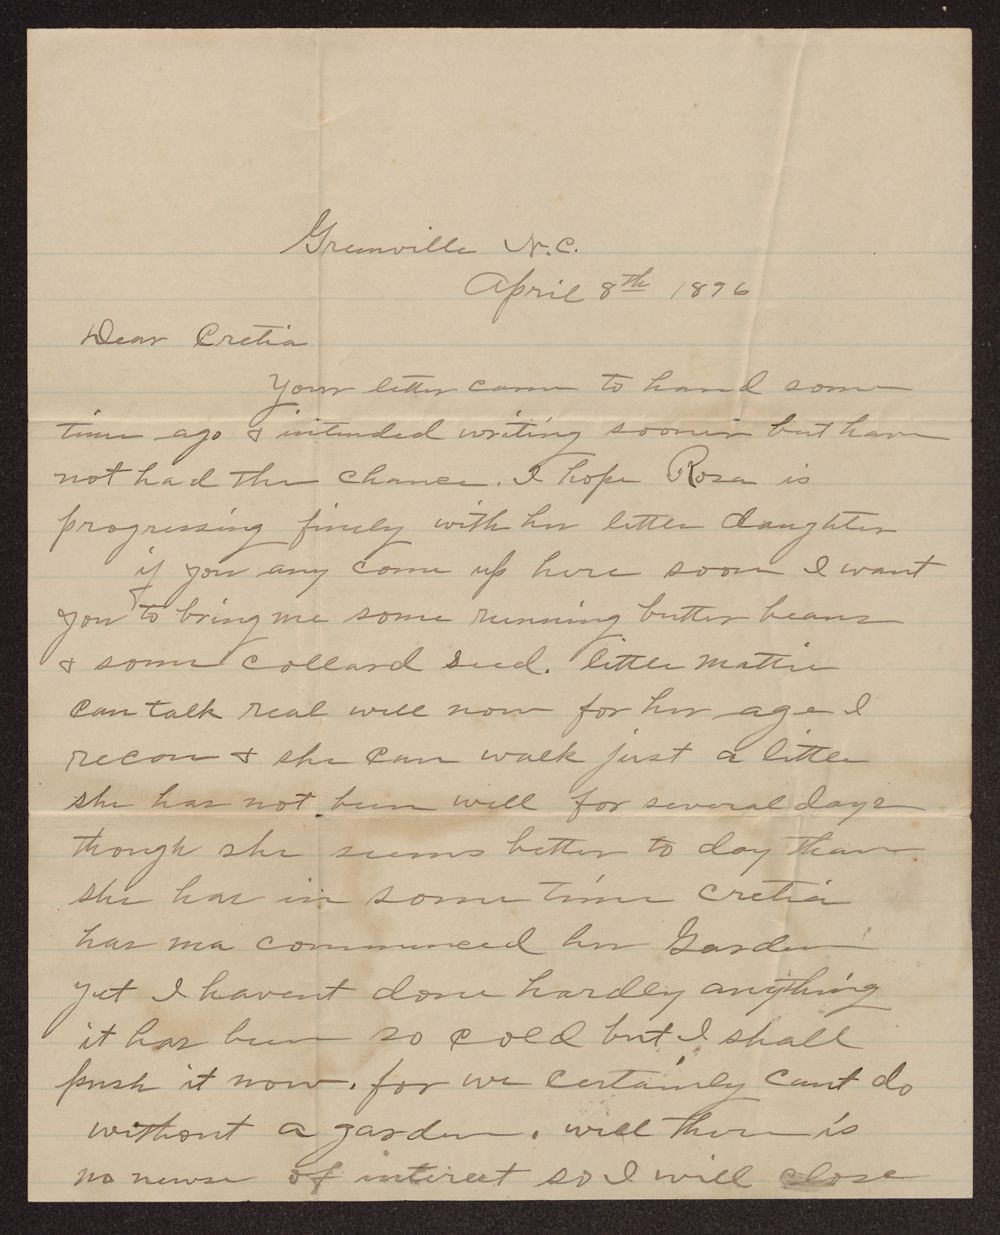 Greenville N.C.
April 8th 1896
Dear Cretia
Your letter came to hand some
time ago & intended writing sooner but have
not had the chance. I hope Rosa is
progressing finely with her little daughter
if you any come up here soon I want
you to bring me some running butter beans
& some collard seed. little Mattie
can talk real well now for her age I
recon & she can walk just a little
she has not been well for several days
though she seems better to day than
she has in some time Cretia
has ma commenced her Garden
yet I havent done hardly anything
it has been so cold but I shall
push it now. for we certainly cant do
without a garden. well there is
no newse of interest so I will close